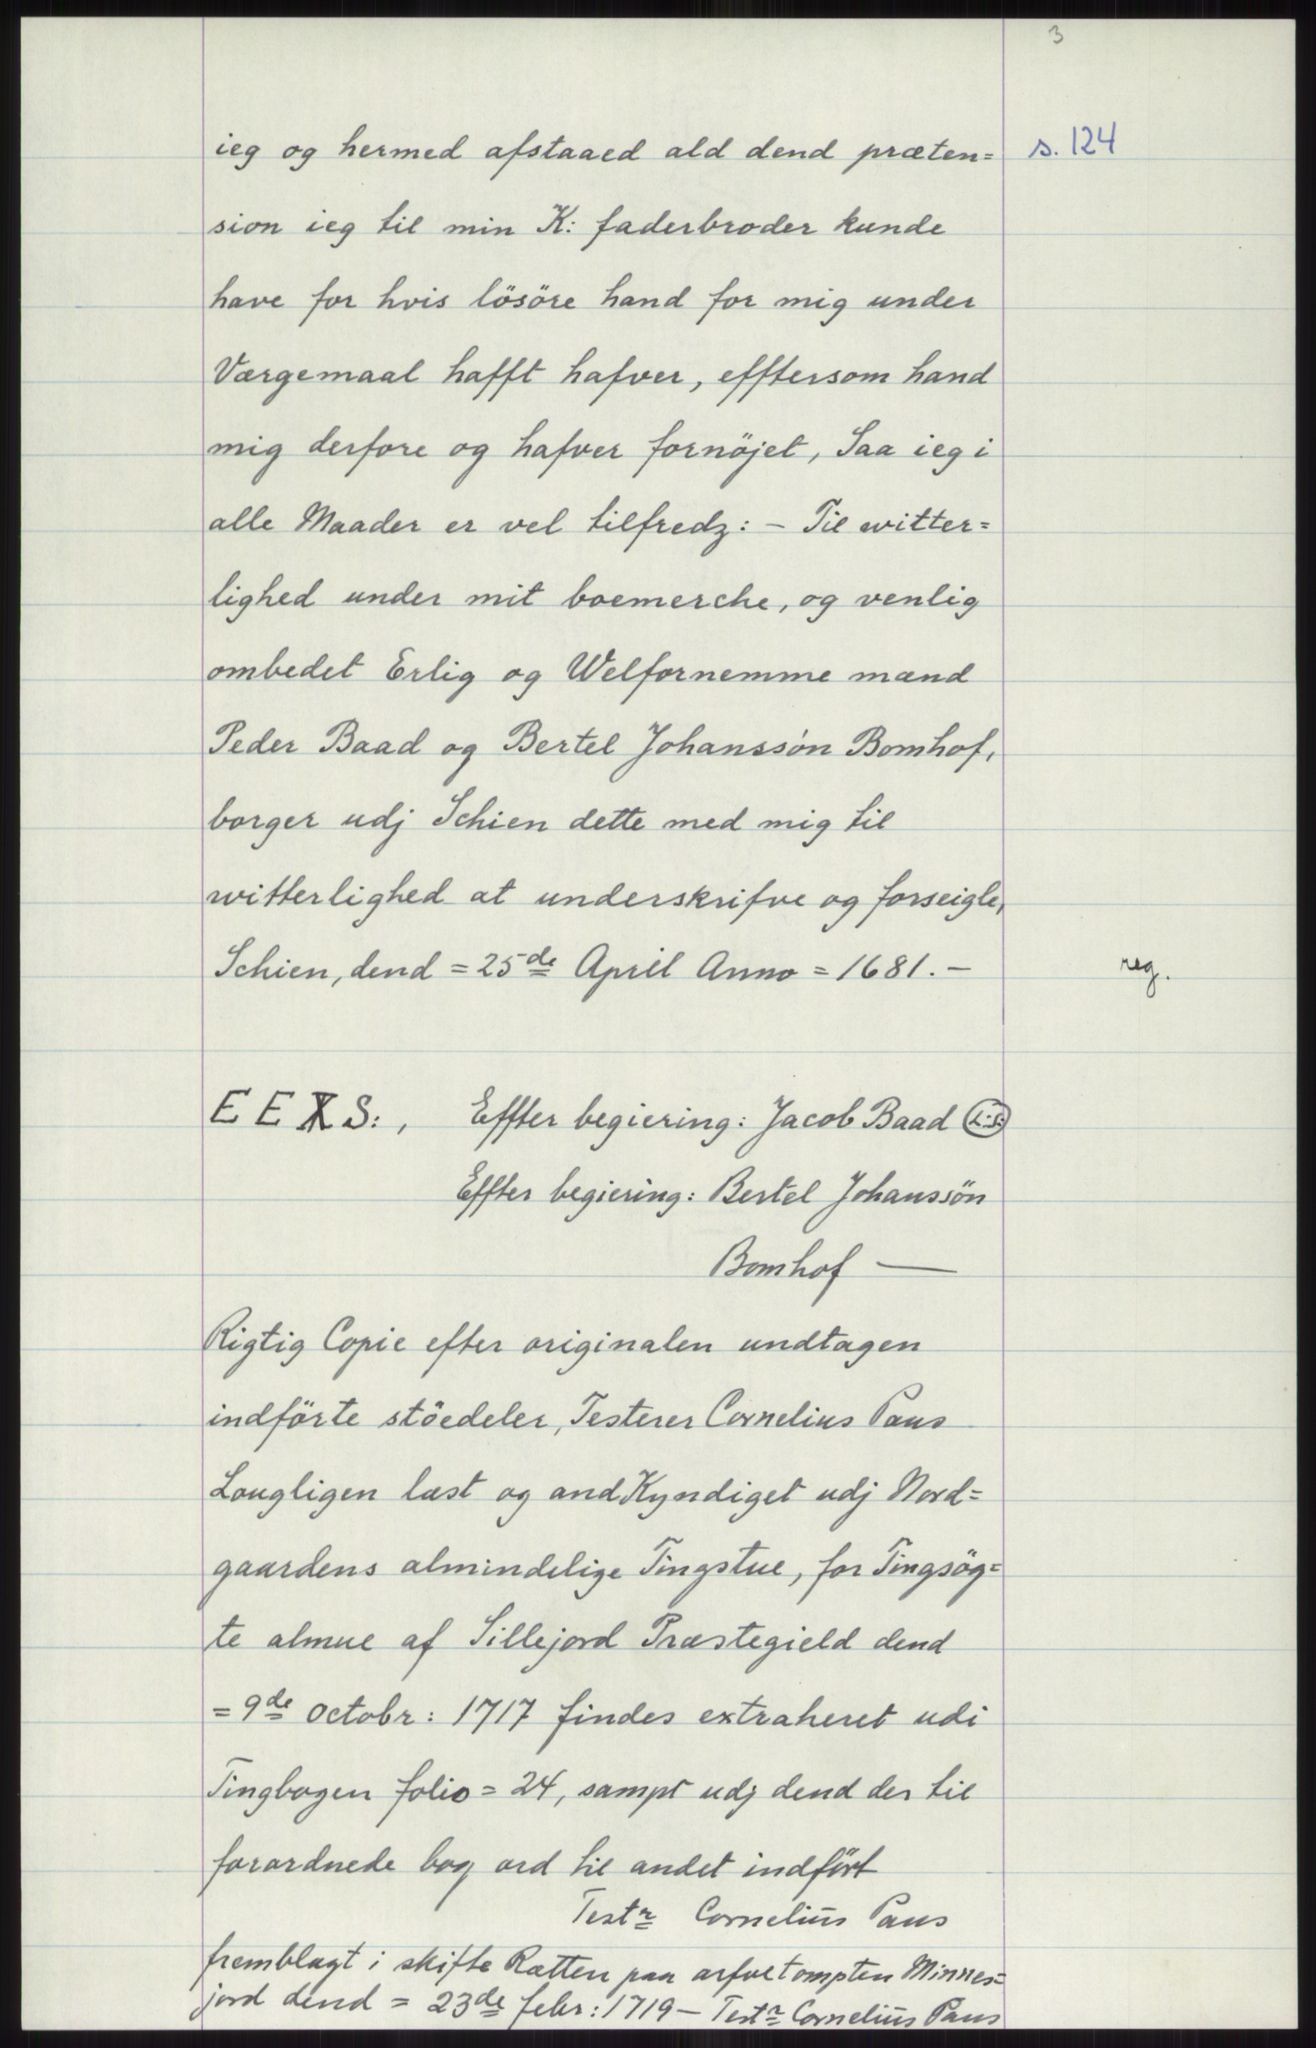 3
ieg og hermed afstaaed ald dend præten= s. 124
sion ieg til min K: faderbroder kunde
have for hvis lösöre hand for mig under
Værgemaal hafft hafver, efftersom hand
mig derfore og hafver fornöjet, Saa ieg i
alle Maader er vel tilfredz: - Til witter=
lighed under mit boemerche, og venlig
ombedet Erlig og Welfornemme mænd
Peder Baad og Bertel Johanssön Bomhof,
borger udj Schien dette med mig til
witterlighed at underskrifve og forseigle,
Schien, dend = 25de April Anno = 1681. - reg.
E E X S: , Effter begiering: Jacob Baad L:S:
Effter begiering: Bertel Johanssön
Bomhof —
Rigtig Copie efter originalen undtagen
indförte stöedeler, Testerer Cornelius Paus
Lougligen læst og andKyndiget udj Nord=
gaardens almindelige Tingstue, for Tingsög=
te almue af Sillejord Præstegield dend
= 9de octobr: 1717 findes extraheret udi
Tingbogen folio = 24, sampt udj dend der til
forordnede bog ord til andet indfört
Testr Cornelius Paus
fremblagt i skifte Rætten paa arfvetompten Minnes=
jord dend = 23de febr: 1719 - Testr Cornelius Paus